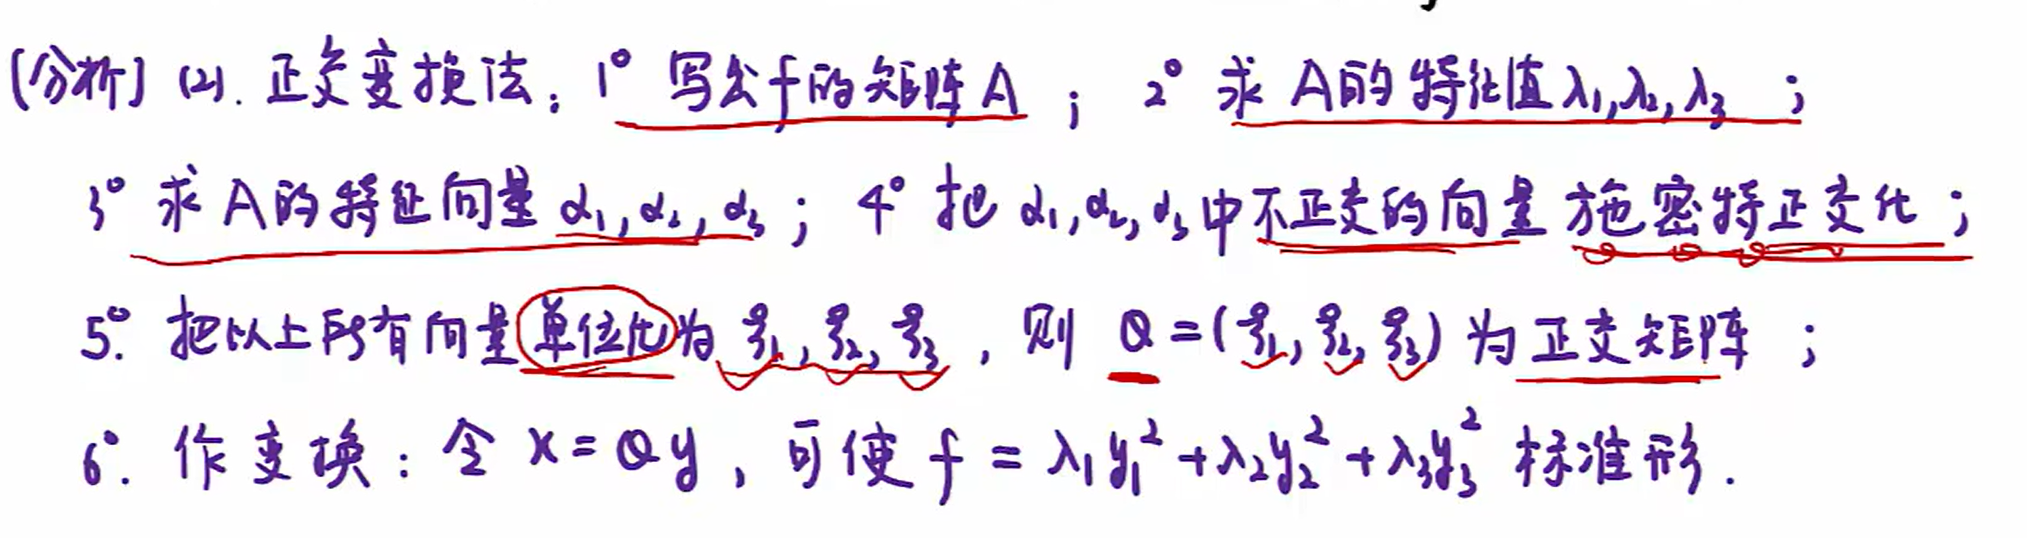 [分析] (2). 正交变换法: 1° 写出f的矩阵A ; 2° 求 A的特征值λ₁,λ₂,λ₃ ;
3° 求 A的特征向量 α₁,α₂,α₃ ; 4° 把 α₁,α₂,α₃中不正交的向量 施密特正交化 ;
5°. 把以上所有向量单位化为 ξ₁,ξ₂,ξ₃ , 则 Q=(ξ₁,ξ₂,ξ₃) 为正交矩阵 ;
6°. 作变换: 令 x=Qy , 可使 f = λ₁y₁²+λ₂y₂²+λ₃y₃² 标准形.